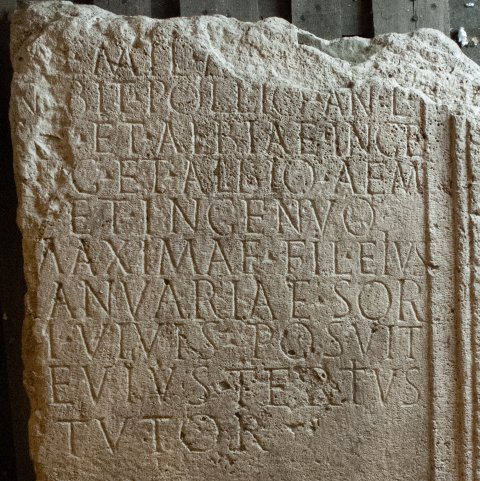 MIL
BIT·POLLIO·AN·L
ET·AEBTIAE·INGE
C·ET·ALBIO·AEM
ET INGENVO
MAXIMAE·FIL·EIVS
ANVARIAE·SOR
VIVIS·POSVIT
EVIVS·TERTVS
TVTOR